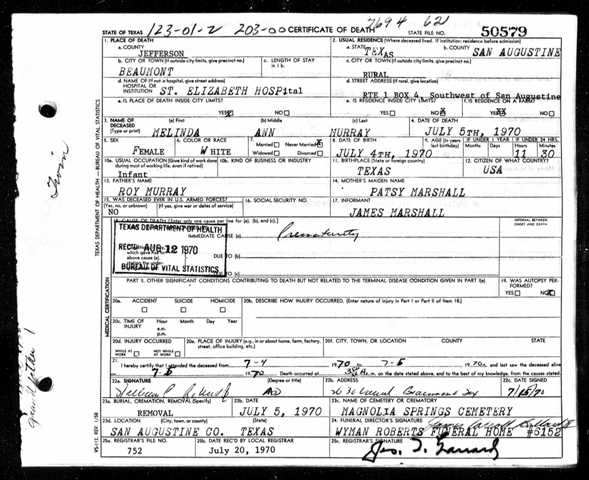 7694 621
STATE OF TEXAS 123-01-2 203-00 CERTIFICATE OF DEATH 50579
1. PLACE OF DEATH
2. USUAL RESIDENCE (Where deceased lived. If institution: residence before admission)
a. COUNTY a. STATE b. COUNTY
JEFFERSON TEXAS SAN AUGUSTINE
b. CITY OR TOWN (If outside city limits, give precinct no.) c. LENGTH OF STAY in 1 b. c. CITY OR TOWN (If outside city limits, give precinct no.)
BEAUMONT RURAL
d. NAME OF (If not in hospital, give street address) HOSPITAL OR INSTITUTION d. STREET ADDRESS (If rural, give location)
ST. ELIZABETH HOSPital RTE 1 BOX 4, Southwest of San Augustine
e. IS PLACE OF DEATH INSIDE CITY LIMITS? e. IS RESIDENCE INSIDE CITY LIMITS? f. IS RESIDENCE ON A FARM?
YES NO YES NO YES NO
3. NAME OF DECEASED (Type or print) (a) First (b) Middle (c) Last 4. DATE OF DEATH
MELINDA ANN MURRAY JULY 5TH, 1970
5. SEX 6. COLOR OR RACE 7. Married Never Married Widowed Divorced 8. DATE OF BIRTH 9. AGE (In years last birthday) IF UNDER 1 YEAR IF UNDER 24 HRS. Months Days Hours Min.
FEMALE WHITE JULY 4TH, 1970 11 30
10a. USUAL OCCUPATION (Give kind of work done during most of working life, even if retired) 10b. KIND OF BUSINESS OR INDUSTRY 11. BIRTHPLACE (State or foreign country) 12. CITIZEN OF WHAT COUNTRY?
Infant TEXAS USA
13. FATHER'S NAME 14. MOTHER'S MAIDEN NAME
ROY MURRAY PATSY MARSHALL
15. WAS DECEASED EVER IN U.S. ARMED FORCES? (Yes, no, or unknown) (If yes, give war or dates of service) 16. SOCIAL SECURITY NO. 17. INFORMANT
NO JAMES MARSHALL
18. CAUSE OF DEATH INTERVAL BETWEEN ONSET AND DEATH
TEXAS DEPARTMENT OF HEALTH
IMMEDIATE CAUSE (a) Prematurity
REC'D AUG 12 1970
DUE TO (b)
BUREAU OF VITAL STATISTICS
DUE TO (c)
PART II. OTHER SIGNIFICANT CONDITIONS CONTRIBUTING TO DEATH BUT NOT RELATED TO THE TERMINAL DISEASE CONDITION GIVEN IN PART I(a) 19. WAS AUTOPSY PERFORMED?
YES NO
20a. ACCIDENT SUICIDE HOMICIDE 20b. DESCRIBE HOW INJURY OCCURRED. (Enter nature of injury in Part I or Part II of Item 18.)
20c. TIME OF INJURY Hour Month Day Year a.m. p.m.
20d. INJURY OCCURRED WHILE AT WORK NOT WHILE AT WORK 20e. PLACE OF INJURY (e.g., in or about home, farm, factory, street, office building, etc.) 20f. CITY, TOWN, OR LOCATION COUNTY STATE
21. I hereby certify that I attended the deceased from 7-4 1970 to 7-5 1970, and last saw the deceased alive
on 7-5 1970 Death occurred at m. on the date stated above, and to the best of my knowledge, from the causes stated
22a. SIGNATURE (Degree or title) 22b. ADDRESS 22c. DATE SIGNED
MD Beaumont Tex
23a. BURIAL, CREMATION, REMOVAL (Specify) 23b. DATE 23c. NAME OF CEMETERY OR CREMATORY
REMOVAL JULY 5, 1970 MAGNOLIA SPRINGS CEMETERY
23d. LOCATION (City, town, or county) (State) 24. FUNERAL DIRECTOR'S SIGNATURE
SAN AUGUSTINE CO. TEXAS WYMAN ROBERTS FUNERAL HOME #6152
25a. REGISTRAR'S FILE NO. 25b. DATE REC'D BY LOCAL REGISTRAR 25c. REGISTRAR'S SIGNATURE
752 July 20, 1970
TEXAS DEPARTMENT OF HEALTH — BUREAU OF VITAL STATISTICS
MEDICAL CERTIFICATION